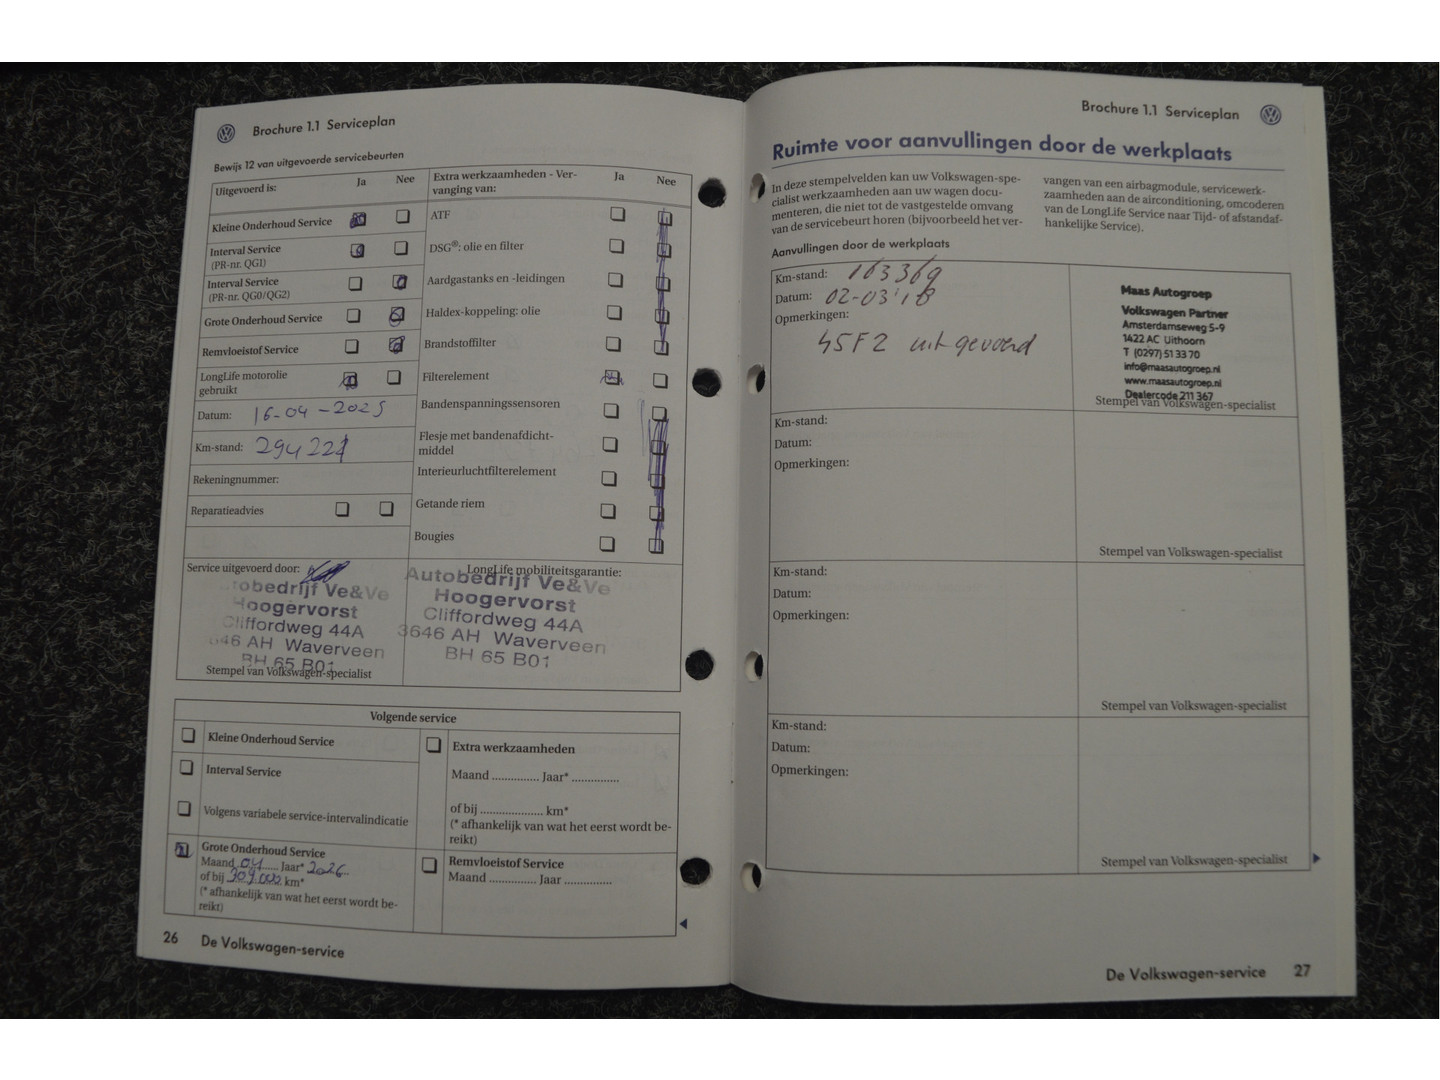 Brochure 1.1 Serviceplan
Bewijs 12 van uitgevoerde servicebeurten
Uitgevoerd is: Ja Nee
Kleine Onderhoud Service
Interval Service
(PR-nr. QG1)
Interval Service
(PR-nr. QG0/QG2)
Grote Onderhoud Service
Remvloeistof Service
LongLife motorolie
gebruikt
Datum: 16-04-2025
Km-stand: 294221
Rekeningnummer:
Reparatieadvies
Extra werkzaamheden - Ver-
vanging van: Ja Nee
ATF
DSG®: olie en filter
Aardgastanks en -leidingen
Haldex-koppeling: olie
Brandstoffilter
Filterelement
Bandenspanningssensoren
Flesje met bandenafdicht-
middel
Interieurluchtfilterelement
Getande riem
Bougies
Service uitgevoerd door:
Autobedrijf Ve&Ve
Hoogervorst
Cliffordweg 44A
3646 AH Waverveen
BH 65 B01
Stempel van Volkswagen-specialist
LongLife mobiliteitsgarantie:
Autobedrijf Ve&Ve
Hoogervorst
Cliffordweg 44A
3646 AH Waverveen
BH 65 B01
Volgende service
Kleine Onderhoud Service
Interval Service
Volgens variabele service-intervalindicatie
Grote Onderhoud Service
Maand 04 Jaar* 2026
of bij 309.000 km*
(* afhankelijk van wat het eerst wordt be-
reikt)
Extra werkzaamheden
Maand ............... Jaar* ...............
of bij .................... km*
(* afhankelijk van wat het eerst wordt be-
reikt)
Remvloeistof Service
Maand ............... Jaar ...............
26 De Volkswagen-service
Brochure 1.1 Serviceplan
Ruimte voor aanvullingen door de werkplaats
In deze stempelvelden kan uw Volkswagen-spe-
cialist werkzaamheden aan uw wagen docu-
menteren, die niet tot de vastgestelde omvang
van de servicebeurt horen (bijvoorbeeld het ver-
vangen van een airbagmodule, servicewerk-
zaamheden aan de airconditioning, omcoderen
van de LongLife Service naar Tijd- of afstandaf-
hankelijke Service).
Aanvullingen door de werkplaats
Km-stand: 163369
Datum: 02-03'18
Opmerkingen:
45F2 uitgevoerd
Maas Autogroep
Volkswagen Partner
Amsterdamseweg 5-9
1422 AC Uithoorn
T (0297) 51 33 70
info@maasautogroep.nl
www.maasautogroep.nl
Dealercode 211 367
Stempel van Volkswagen-specialist
Km-stand:
Datum:
Opmerkingen:
Stempel van Volkswagen-specialist
Km-stand:
Datum:
Opmerkingen:
Stempel van Volkswagen-specialist
Km-stand:
Datum:
Opmerkingen:
Stempel van Volkswagen-specialist
De Volkswagen-service 27